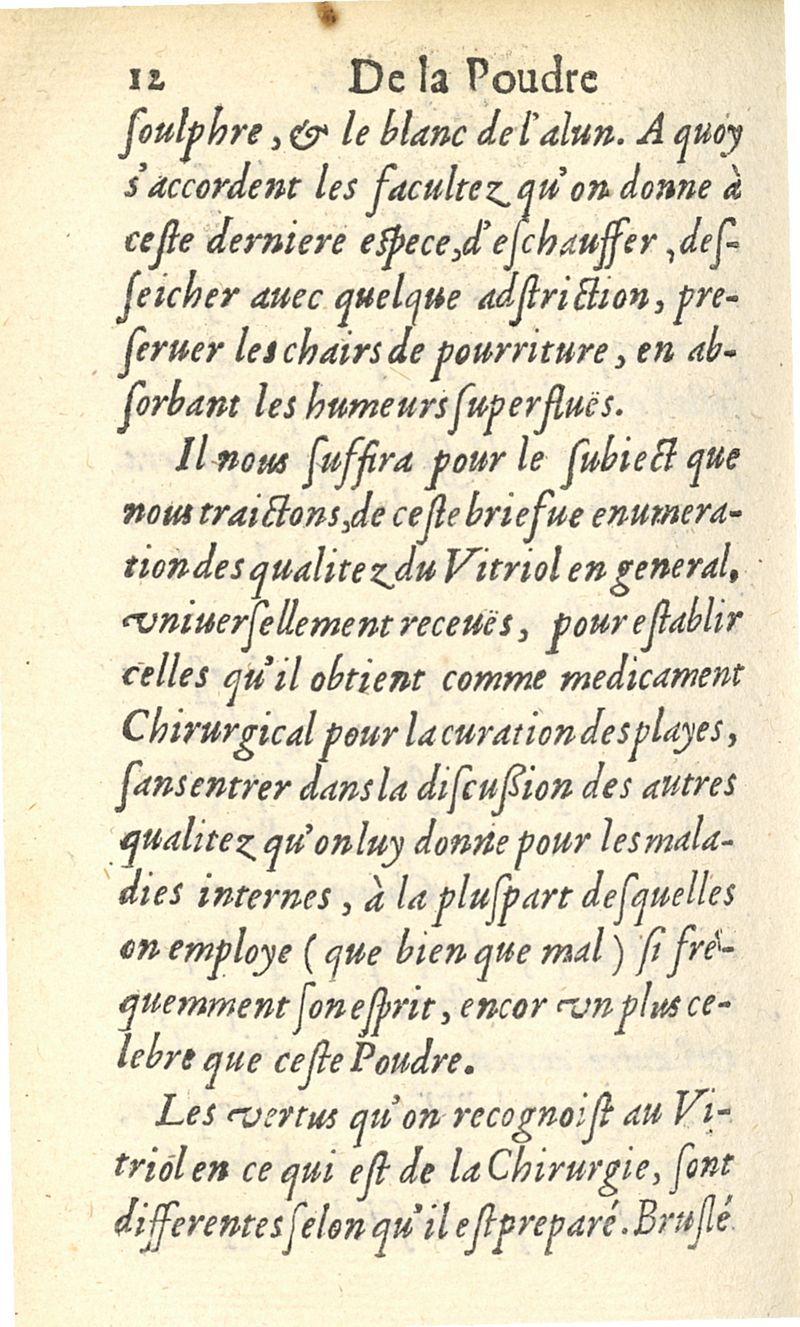 12 De la Poudre
ſoulphre, & le blanc de l'alun. A quoy
s'accordent les facultez qu'on donne à
ceſte derniere eſpece, d'eſchauffer, deſ-
ſeicher auec quelque adſtriction, pre-
ſeruer les chairs de pourriture, en ab-
ſorbant les humeurs ſuperfluës.
Il nous ſuffira pour le ſubiect que
nous traictons, de ceſte briefue enumera-
tion des qualitez du Vitriol en general,
vniuerſellement receuës, pour eſtablir
celles qu'il obtient comme medicament
Chirurgical pour la curation des playes,
ſans entrer dans la diſcuſſion des autres
qualitez qu'on luy donne pour les mala-
dies internes, à la pluſpart deſquelles
on employe (que bien que mal) ſi fre-
quemment ſon eſprit, encor vn plus ce-
lebre que ceſte Poudre.
Les vertus qu'on recognoiſt au Vi-
triol en ce qui eſt de la Chirurgie, ſont
differentes ſelon qu'il eſt preparé. Bruſlé